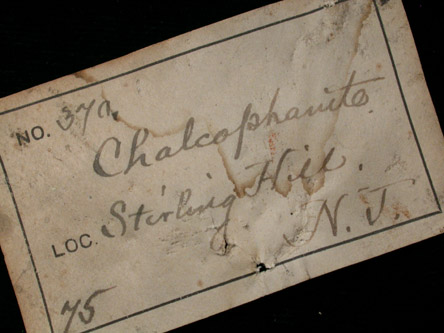 NO. 370.
Chalcophanite.
LOC. Stirling Hill.
N. J.
75